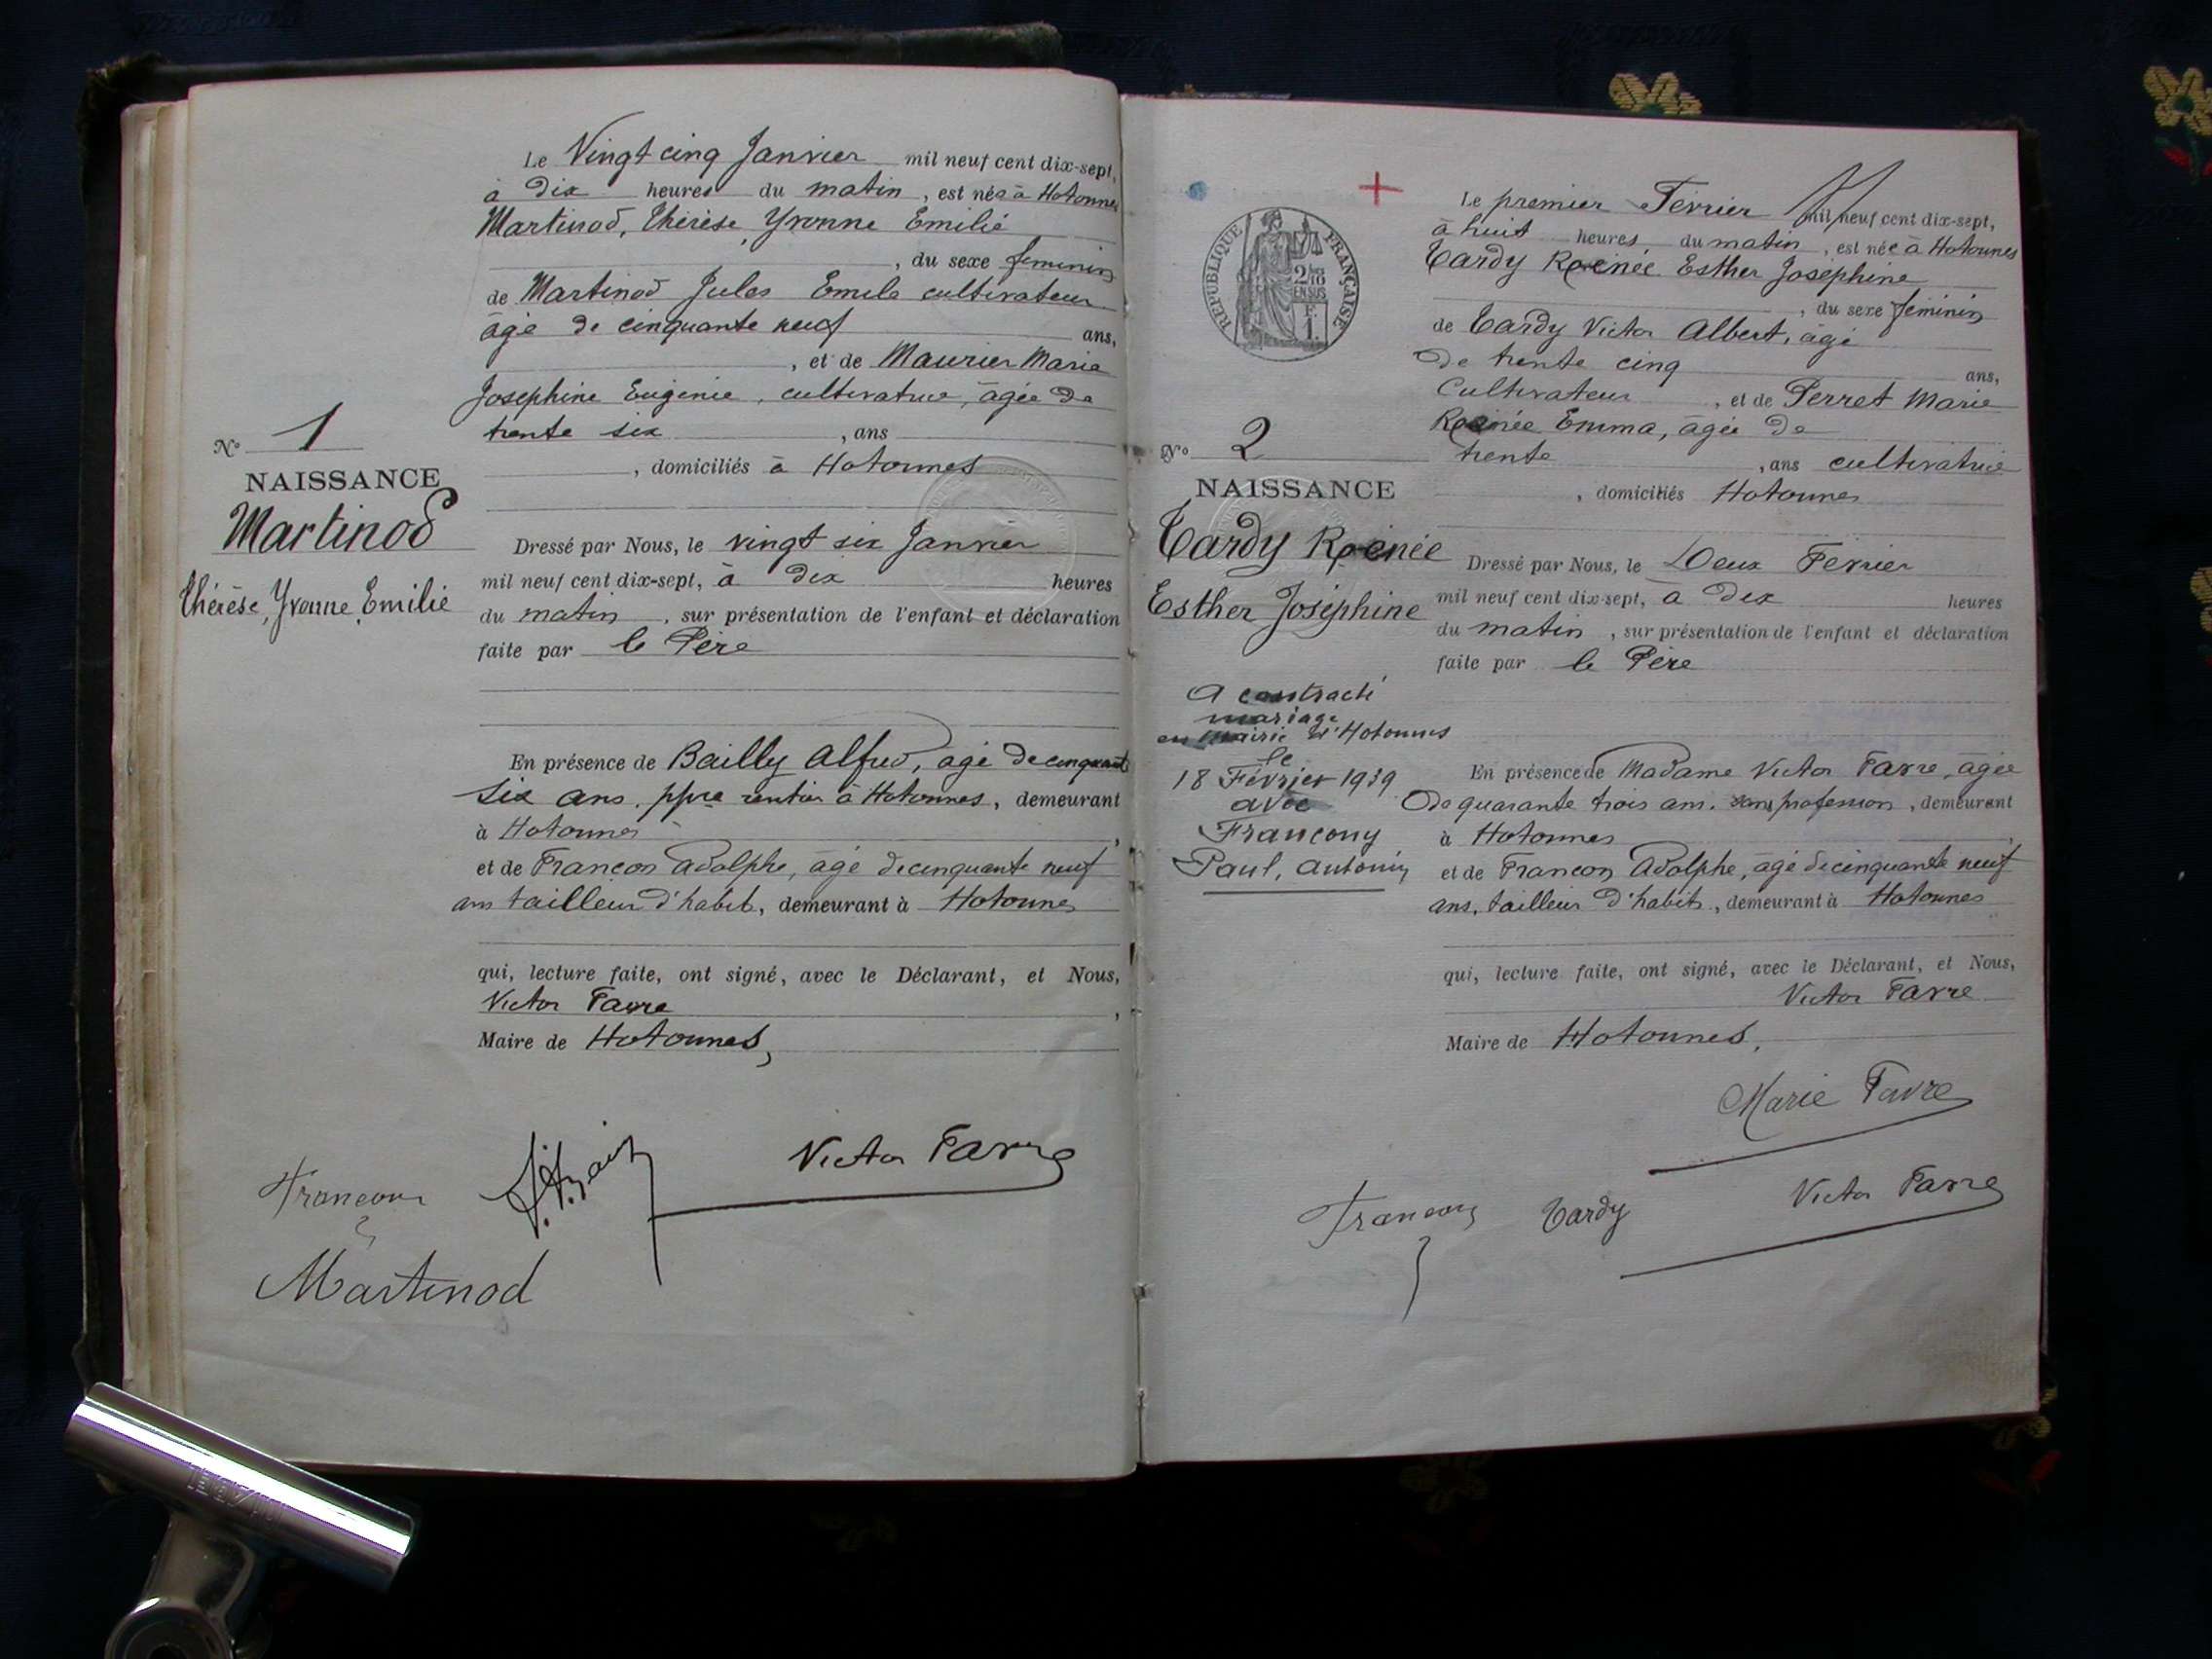 Le Vingt cinq Janvier mil neuf cent dix-sept,
à Dix heures du matin, est née à Hotonnes
Martinod, Thérèse, Yvonne Emilie
, du sexe feminin
de Martinod Jules Emile cultivateur
âgé de cinquante neuf ans,
, et de Maurier Marie
Joséphine Eugénie, cultivatrice, âgée de
trente six , ans
, domiciliés à Hotonnes
No 1
NAISSANCE
Martinod
Thérèse, Yvonne, Emilie
Dressé par Nous, le vingt six Janvier
mil neuf cent dix-sept, à dix heures
du matin, sur présentation de l'enfant et déclaration
faite par le Père
En présence de Bailly Alfred, âgé de cinquante
six ans, ppre rentier à Hotonnes, demeurant
à Hotonnes,
et de Françon Adolphe, âgé de cinquante neuf
ans tailleur d'habit, demeurant à Hotonnes
qui, lecture faite, ont signé, avec le Déclarant, et Nous,
Victor Favre,
Maire de Hotonnes,
Françon
Victor Favre
Martinod
REPUBLIQUE FRANÇAISE
2/10
EN SUS
F.
1.
Le premier Février mil neuf cent dix-sept,
à huit heures du matin, est née à Hotonnes
Tardy Reinée Esther Joséphine
, du sexe féminin
de Tardy Victor Albert, âgé
de trente cinq ans,
Cultivateur, et de Perret Marie
Reinée Emma, âgée de
trente , ans cultivatrice
, domiciliés Hotonnes
No 2
NAISSANCE
Tardy Reinée
Esther Joséphine
A contracté
mariage
en mairie d'Hotonnes
le
18 Février 1939
avec
Françony
Paul, Antonin
Dressé par Nous, le Deux Février
mil neuf cent dix-sept, à Dix heures
du matin, sur présentation de l'enfant et déclaration
faite par le Père
En présence de Madame Victor Favre, âgée
de quarante trois ans, sans profession, demeurant
à Hotonnes,
et de Françon Adolphe, âgé de cinquante neuf
ans, tailleur d'habits, demeurant à Hotonnes
qui, lecture faite, ont signé, avec le Déclarant, et Nous,
Victor Favre
Maire de Hotonnes,
Marie Favre
Françon Tardy Victor Favre